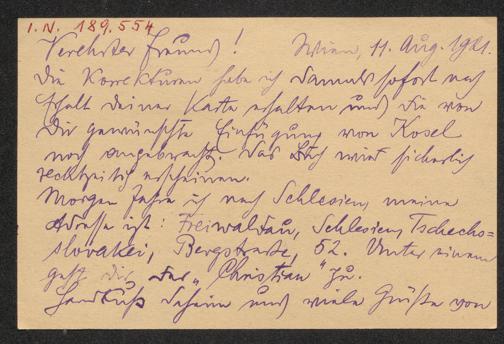 I.N. 189.554
Verehrter Freund! Wien, 11. Aug. 1921.
Die Korrekturen habe ich damals sofort nach
Erhalt deiner Karte erhalten und die von
Dir gewünschte Einfügung von Kosel
noch angebracht. Das Buch wird sicherlich
rechtzeitig erscheinen.
Morgen fahre ich nach Schlesien, meine
Adresse ist: Freiwaldau, Schlesien, Tschecho=
slovakei, Bergstraße, 52. Unter einem
geht dir der „Christian" zu.
Handkuß daheim und viele Grüße von